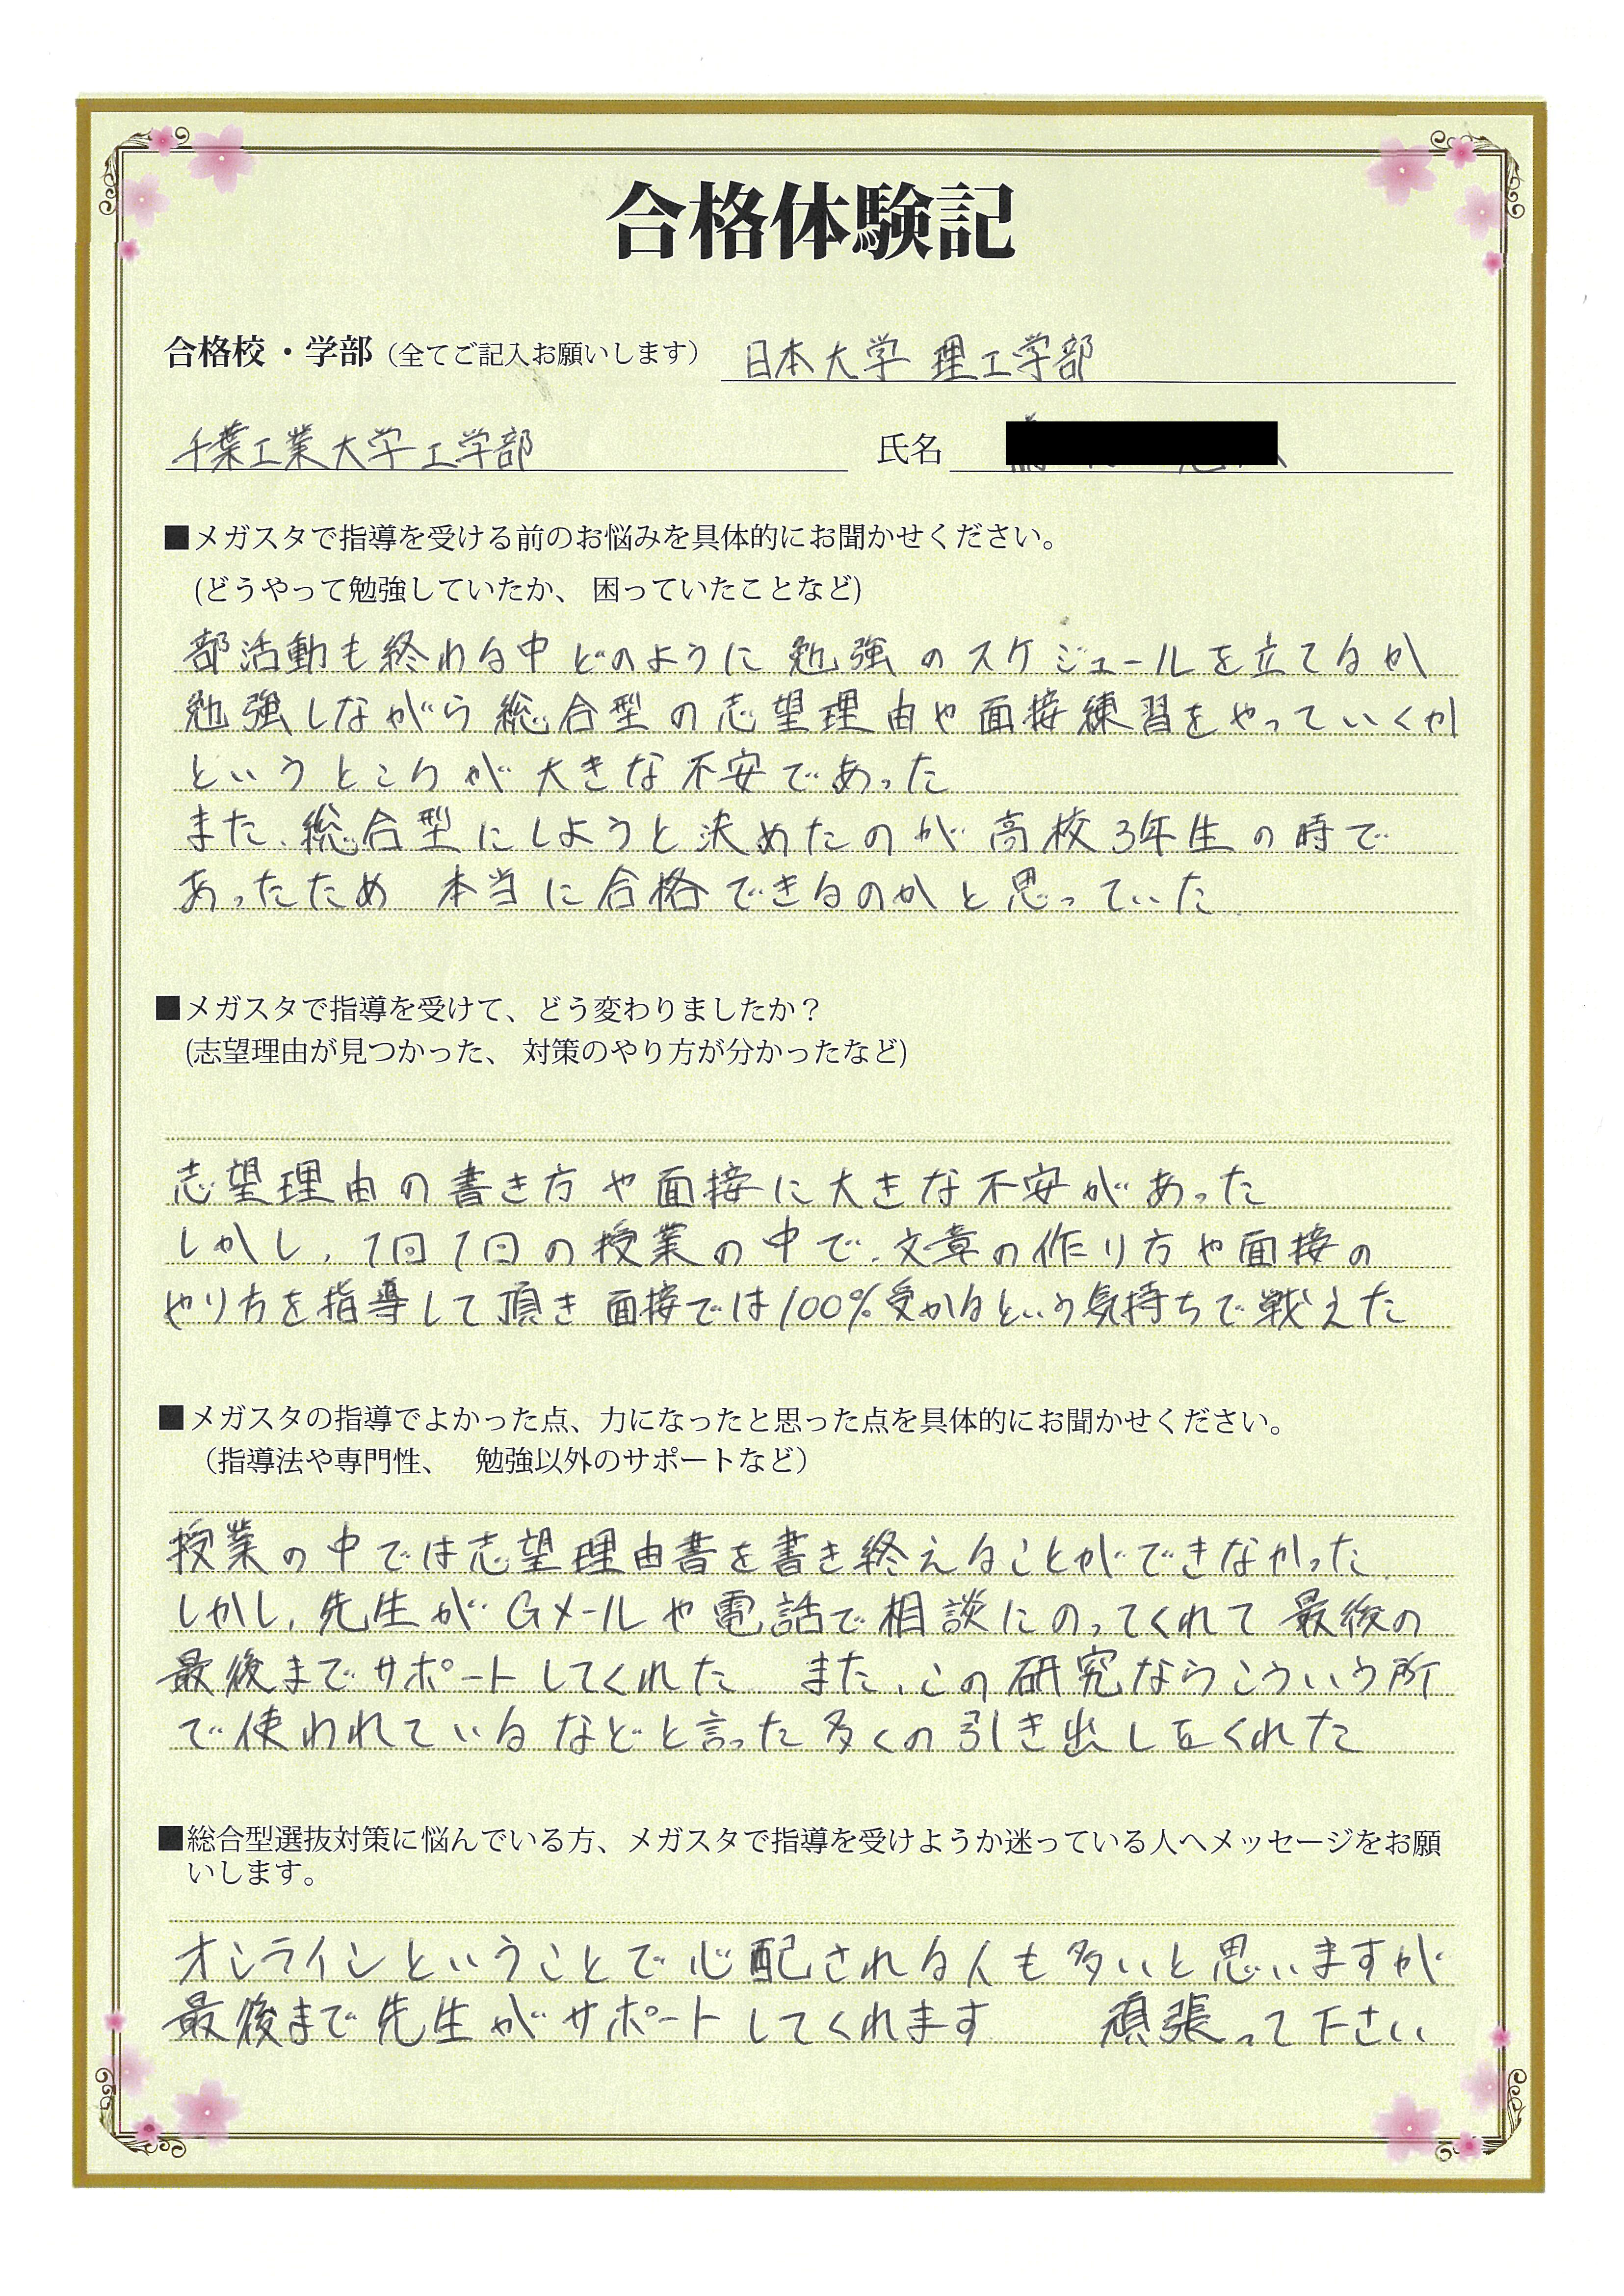 合格体験記
合格校・学部（全てご記入お願いします） 日本大学 理工学部
千葉工業大学工学部 氏名
■メガスタで指導を受ける前のお悩みを具体的にお聞かせください。
(どうやって勉強していたか、 困っていたことなど)
部活動も終わる中 どのように 勉強 のスケジュールを立てるか
勉強しながら総合型の志望理由や面接練習をやっていくか
というところが大きな不安であった
また、総合型にしようと決めたのが高校3年生の時で
あったため 本当に合格できるのかと思っていた
■メガスタで指導を受けて、どう変わりましたか？
(志望理由が見つかった、 対策のやり方が分かったなど)
志望理由の書き方や面接に大きな不安があった
しかし、1回1回の授業の中で、文章の作り方や面接の
やり方を指導して頂き 面接では100%受かるという気持ちで戦えた
■メガスタの指導でよかった点、力になったと思った点を具体的にお聞かせください。
（指導法や専門性、 勉強以外のサポートなど）
授業の中では志望理由書を書き終えることができなかった
しかし、先生がGメールや電話で相談にのってくれて 最後の
最後までサポートしてくれた また、この研究ならこういう所
で使われているなどと言った多くの引き出しをくれた
■総合型選抜対策に悩んでいる方、メガスタで指導を受けようか迷っている人へメッセージをお願
いします。
オンラインということで心配される人も多いと思いますが
最後まで先生がサポートしてくれます 頑張って下さい